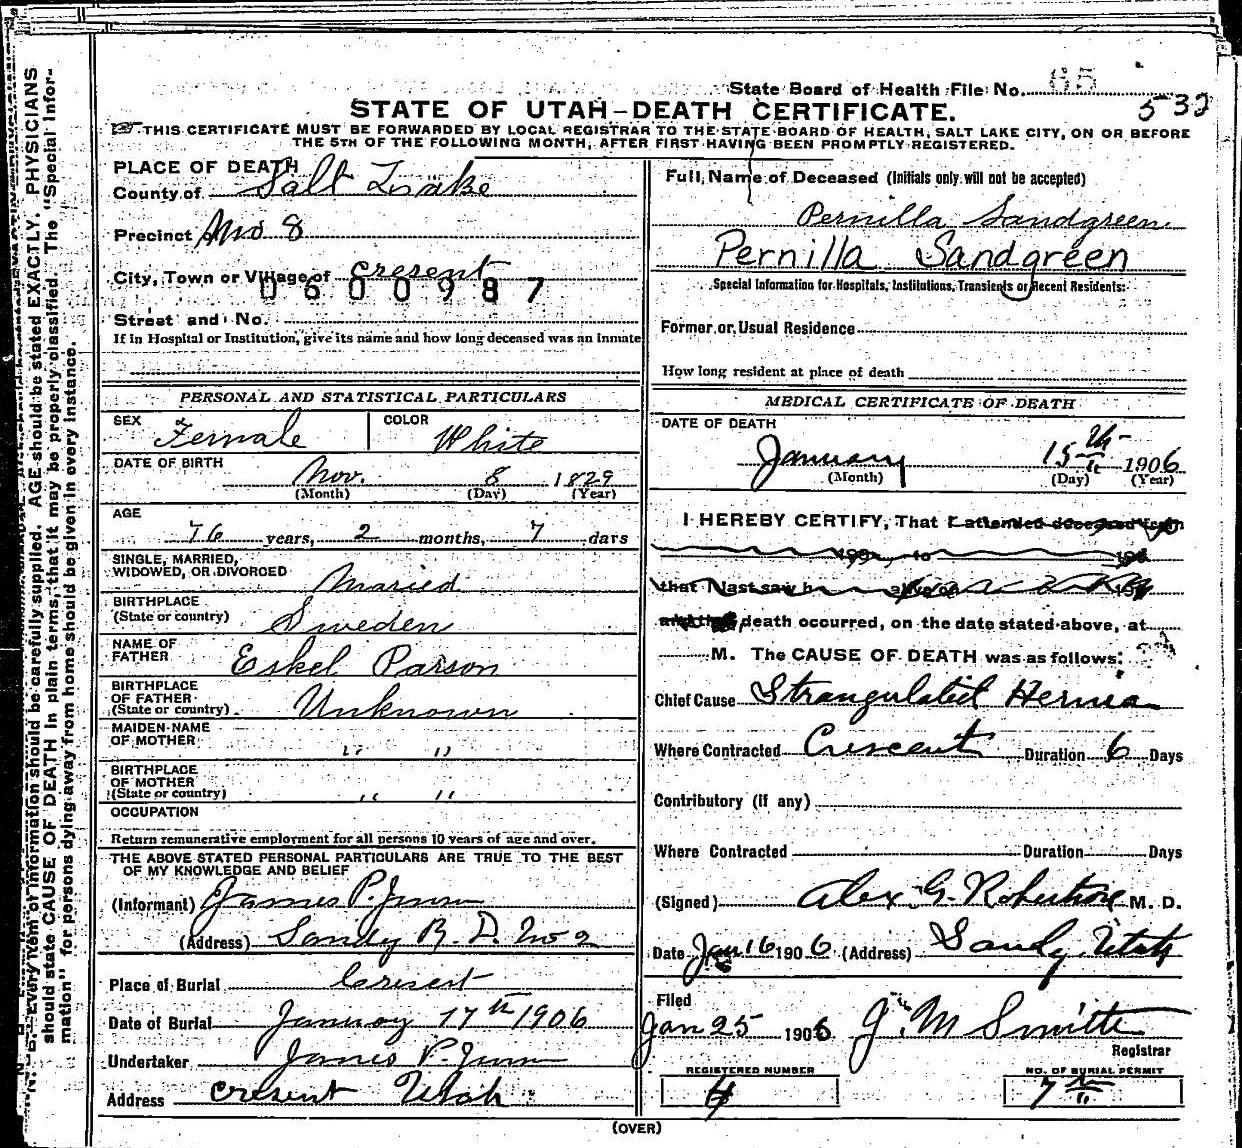 State Board of Health File No. 65
532
STATE OF UTAH—DEATH CERTIFICATE.
THIS CERTIFICATE MUST BE FORWARDED BY LOCAL REGISTRAR TO THE STATE BOARD OF HEALTH, SALT LAKE CITY, ON OR BEFORE
THE 5TH OF THE FOLLOWING MONTH, AFTER FIRST HAVING BEEN PROMPTLY REGISTERED.
PLACE OF DEATH
County of Salt Lake
Precinct No 8
City, Town or Village of Cresent
0600987
Street and No.
If in Hospital or Institution, give its name and how long deceased was an Inmate
PERSONAL AND STATISTICAL PARTICULARS
SEX Female COLOR White
DATE OF BIRTH
Nov. 8 1829
(Month) (Day) (Year)
AGE
76 years, 2 months, 7 days
SINGLE, MARRIED,
WIDOWED, OR DIVORCED Maried
BIRTHPLACE
(State or country) Sweden
NAME OF
FATHER Eskel Parson
BIRTHPLACE
OF FATHER
(State or country) Unknown
MAIDEN NAME
OF MOTHER " "
BIRTHPLACE
OF MOTHER
(State or country) " "
OCCUPATION
Return remunerative employment for all persons 10 years of age and over.
THE ABOVE STATED PERSONAL PARTICULARS ARE TRUE TO THE BEST
OF MY KNOWLEDGE AND BELIEF
(Informant) James P. Jensen
(Address) Sandy R. D. No 2
Place of Burial Cresent
Date of Burial January 17th 1906
Undertaker James P. Jensen
Address Cresent Utah
Full Name of Deceased (Initials only will not be accepted)
Pernilla Sandgreen
Pernilla Sandgreen
Special Information for Hospitals, Institutions, Transients or Recent Residents:
Former or Usual Residence
How long resident at place of death
MEDICAL CERTIFICATE OF DEATH
DATE OF DEATH
January 15th 1906
(Month) (Day) (Year)
I HEREBY CERTIFY, That I attended deceased from
190 , to 190
that I last saw h alive on 190
and that death occurred, on the date stated above, at
M. The CAUSE OF DEATH was as follows:
Chief Cause Strangulated Hernia
Where Contracted Crescent Duration 6 Days
Contributory (If any)
Where Contracted Duration Days
(Signed) Alex. G. Robertson M. D.
Date Jan 16 1906 (Address) Sandy Utah
Filed
Jan 25 1906 J. M Smith
Registrar
REGISTERED NUMBER NO. OF BURIAL PERMIT
4 7th
(OVER)
N. B.—Every item of information should be carefully supplied. AGE should be stated EXACTLY. PHYSICIANS
should state CAUSE OF DEATH in plain terms, that it may be properly classified. The "Special Infor-
mation" for persons dying away from home should be given in every instance.